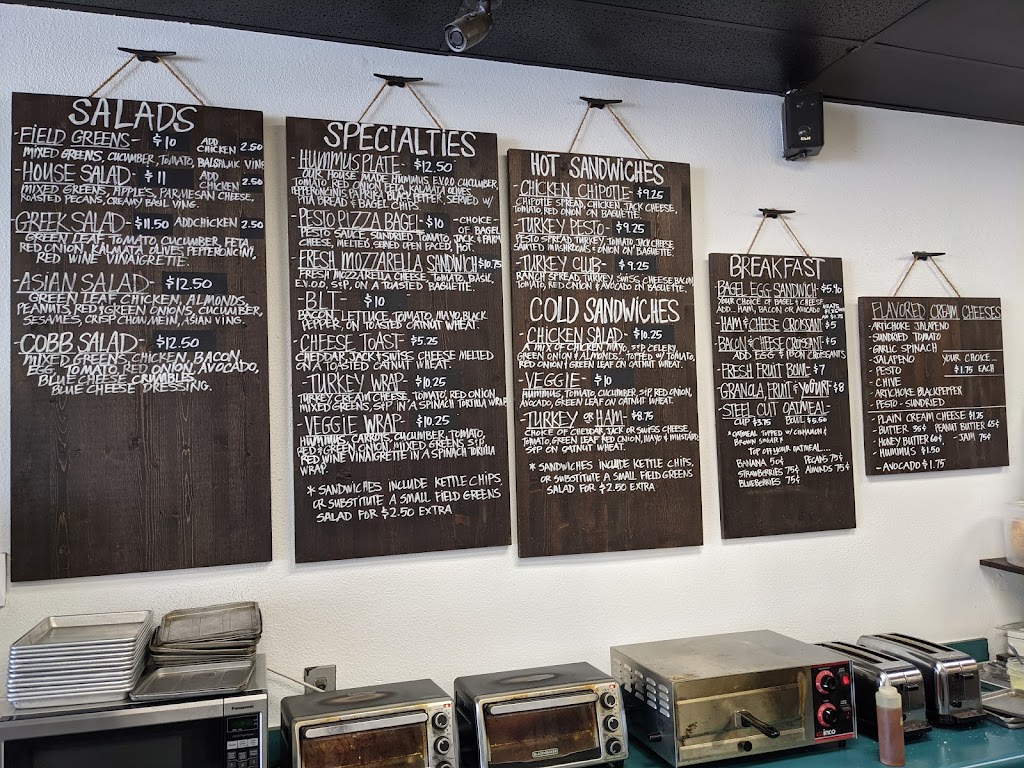 SALADS
-FIELD GREENS- $10 ADD CHICKEN 2.50
MIXED GREENS, CUCUMBER, TOMATO, BALSAMIC VING
-HOUSE SALAD- $11 ADD CHICKEN 2.50
MIXED GREENS, APPLES, PARMESAN CHEESE,
ROASTED PECANS, CREAMY BASIL VING.
-GREEK SALAD- $11.50 ADD CHICKEN 2.50
GREEN LEAF, TOMATO, CUCUMBER, FETA,
RED ONION, KALAMATA OLIVES, PEPPERONCINI,
RED WINE VINAIGRETTE.
-ASIAN SALAD- $12.50
GREEN LEAF, CHICKEN, ALMONDS,
PEANUTS, RED & GREEN ONIONS, CUCUMBER,
SESAMES, CRISP CHOW MEIN, ASIAN VING.
-COBB SALAD- $12.50
MIXED GREENS, CHICKEN, BACON,
EGG, TOMATO, RED ONION, AVOCADO,
BLUE CHEESE CRUMBLES,
BLUE CHEESE DRESSING.
SPECIALTIES
-HUMMUS PLATE- $12.50
OUR HOUSE MADE HUMMUS, E.V.O.O CUCUMBER,
TOMATO, RED ONION, FETA, KALMATA OLIVES,
PEPPERONCINIS, PAPRIKA, BLACK PEPPER, SERVED W/
PITA BREAD & BAGEL CHIPS
-PESTO PIZZA BAGEL- $10 -CHOICE OF BAGEL
PESTO SAUCE, SUNDRIED TOMATO, JACK & PARM
CHEESE, MELTED SERVED OPEN FACED, HOT.
-FRESH MOZZARELLA SANDWICH $10.75
FRESH MOZZARELLA CHEESE, TOMATO, BASIL,
E.V.O.O, S&P, ON A TOASTED BAGUETTE.
-BLT- $10
BACON, LETTUCE, TOMATO, MAYO, BLACK
PEPPER ON TOASTED OATNUT WHEAT.
-CHEESE TOAST- $5.25
CHEDDAR, JACK & SWISS CHEESE MELTED
ON A TOASTED OATNUT WHEAT.
-TURKEY WRAP- $10.25
TURKEY, CREAM CHEESE, TOMATO, RED ONION,
MIXED GREENS, S&P IN A SPINACH TORTILLA WRAP
-VEGGIE WRAP- $10.25
HUMMUS, CARROTS, CUCUMBER, TOMATO,
RED & GREEN ONION, MIXED GREENS, S&P
RED WINE VINAIGRETTE IN A SPINACH TORTILLA
WRAP.
*SANDWICHES INCLUDE KETTLE CHIPS,
OR SUBSTITUTE A SMALL FIELD GREENS
SALAD FOR $2.50 EXTRA
HOT SANDWICHES
-CHICKEN CHIPOTLE- $9.25
CHIPOTLE SPREAD, CHICKEN, JACK CHEESE,
TOMATO, RED ONION ON BAGUETTE.
-TURKEY PESTO- $9.25
PESTO SPREAD, TURKEY, TOMATO, JACK CHEESE
SAUTEED MUSHROOMS & ONION ON BAGUETTE.
-TURKEY CLUB- $9.25
RANCH SPREAD, TURKEY, SWISS CHEESE, BACON,
TOMATO, RED ONION & AVOCADO ON BAGUETTE.
COLD SANDWICHES
-CHICKEN SALAD- $10.25
A MIX OF CHICKEN, MAYO, S&P, CELERY,
GREEN ONION & ALMONDS, TOPPED W/ TOMATO,
RED ONION & GREEN LEAF ON OATNUT WHEAT.
-VEGGIE- $10
HUMMUS, TOMATO, CUCUMBER, S&P, RED ONION,
AVOCADO, GREEN LEAF ON OATNUT WHEAT.
-TURKEY OR HAM- $8.75
CHOICE OF CHEDDAR, JACK OR SWISS CHEESE,
TOMATO, GREEN LEAF, RED ONION, MAYO & MUSTARD
S&P ON OATNUT WHEAT.
*SANDWICHES INCLUDE KETTLE CHIPS,
OR SUBSTITUTE A SMALL FIELD GREENS
SALAD FOR $2.50 EXTRA
BREAKFAST
-BAGEL EGG SANDWICH- $5.40
YOUR CHOICE OF BAGEL & CHEESE
ADD... HAM, BACON OR AVOCADO
-HAM & CHEESE CROISSANT- $5
-BACON & CHEESE CROISSANT- $5
ADD EGG CROISSANTS
-FRESH FRUIT BOWL- $7
-GRANOLA, FRUIT & YOGURT- $8
-STEEL CUT OATMEAL-
CUP $3.75 BOWL $5.50
*OATMEAL TOPPED W/ CINNAMON &
BROWN SUGAR*
TOP OFF YOUR OATMEAL....
BANANA 50¢ PECANS 75¢
STRAWBERRIES 75¢ ALMONDS 75¢
BLUEBERRIES 75¢
FLAVORED CREAM CHEESES
-ARTICHOKE JALAPENO
-SUNDRIED TOMATO
-GARLIC SPINACH
-JALAPENO
-PESTO
-CHIVE
-ARTICHOKE BLACKPEPPER
-PESTO-SUNDRIED
YOUR CHOICE...
$1.75 EACH
-PLAIN CREAM CHEESE $1.75
-BUTTER 35¢ PEANUT BUTTER 65¢
-HONEY BUTTER 60¢ -JAM 75¢
-HUMMUS $1.50
-AVOCADO $1.75
Panasonic
BLACK+DECKER